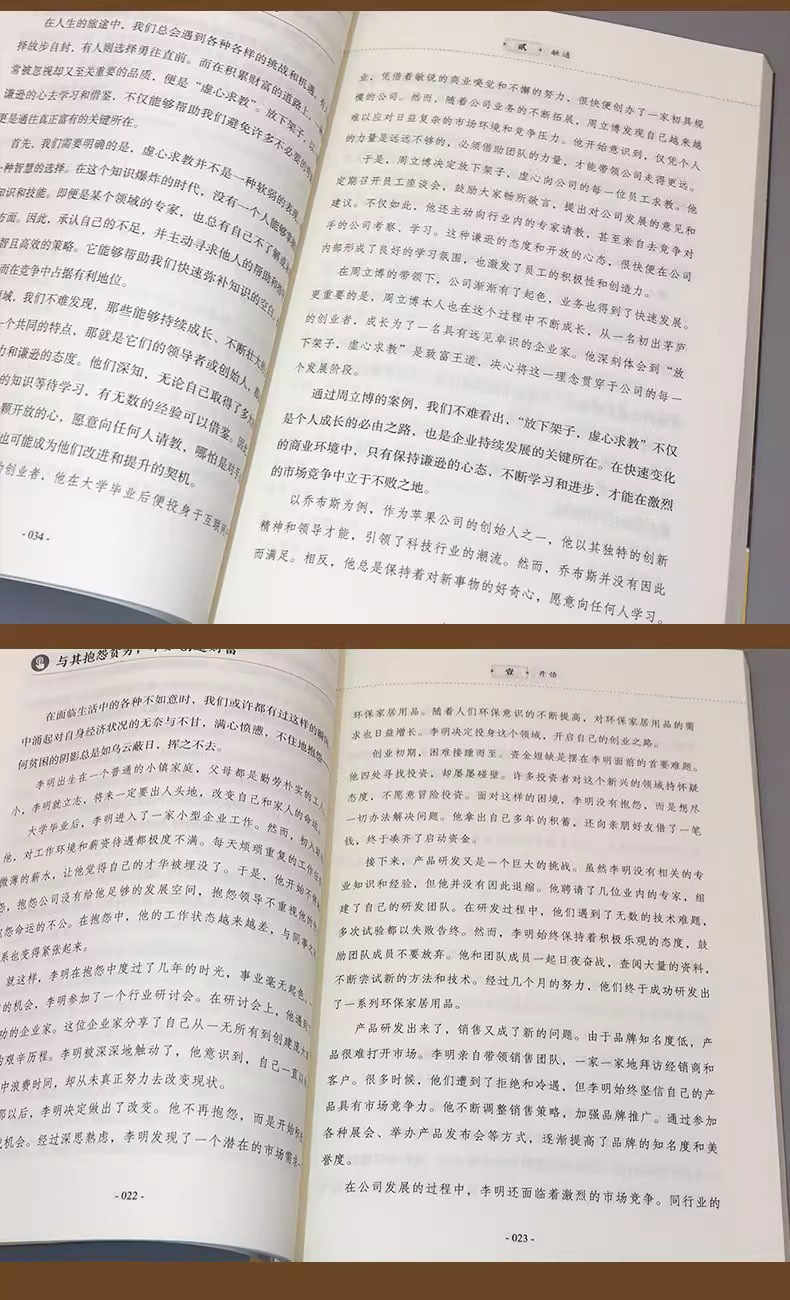 在人生的旅途中，我们总会遇到各种各样的挑战和机遇，有人
择故步自封，有人则选择勇往直前。而在积累财富的道路上，一
常被忽视却又至关重要的品质，便是“虚心求教”。放下架子，以
谦逊的心去学习和借鉴，不仅能够帮助我们避免许多不必要的
更是通往真正富有的关键所在。
首先，我们需要明确的是，虚心求教并不是一种软弱的表现，
一种智慧的选择。在这个知识爆炸的时代，没有一个人能够掌握
知识和技能。即便是某个领域的专家，也总有自己不了解或
方面。因此，承认自己的不足，并主动寻求他人的帮助和指
智且高效的策略。它能够帮助我们快速弥补知识的空白，
而在竞争中占据有利地位。
域，我们不难发现，那些能够持续成长、不断壮大的
一个共同的特点，那就是它们的领导者或创始人，都
力和谦逊的态度。他们深知，无论自己取得了多大
的知识等待学习，有无数的经验可以借鉴。因此
颗开放的心，愿意向任何人请教，哪怕是对手
也可能成为他们改进和提升的契机。
创业者，他在大学毕业后便投身于互联网
- 034 -
贰 融通
业，凭借着敏锐的商业嗅觉和不懈的努力，很快便创办了一家初具规
模的公司。然而，随着公司业务的不断拓展，周立博发现自己越来越
难以应对日益复杂的市场环境和竞争压力。他开始意识到，仅凭个人
的力量是远远不够的，必须借助团队的力量，才能带领公司走得更远。
于是，周立博决定放下架子，虚心向公司的每一位员工求教。他
定期召开员工座谈会，鼓励大家畅所欲言，提出对公司发展的意见和
建议。不仅如此，他还主动向行业内的专家请教，甚至亲自去竞争对
手的公司考察、学习。这种谦逊的态度和开放的心态，很快便在公司
内部形成了良好的学习氛围，也激发了员工的积极性和创造力。
在周立博的带领下，公司渐渐有了起色，业务也得到了快速发展。
更重要的是，周立博本人也在这个过程中不断成长，从一名初出茅庐
的创业者，成长为了一名具有远见卓识的企业家。他深刻体会到“放
下架子，虚心求教”是致富王道，决心将这一理念贯穿于公司的每一
个发展阶段。
通过周立博的案例，我们不难看出，“放下架子，虚心求教”不仅
是个人成长的必由之路，也是企业持续发展的关键所在。在快速变化
的商业环境中，只有保持谦逊的心态，不断学习和进步，才能在激烈
的市场竞争中立于不败之地。
以乔布斯为例，作为苹果公司的创始人之一，他以其独特的创新
精神和领导才能，引领了科技行业的潮流。然而，乔布斯并没有因此
而满足。相反，他总是保持着对新事物的好奇心，愿意向任何人学习。
与其抱怨贫穷，
在面临生活中的各种不如意时，我们或许都有过这样的瞬间，
中涌起对自身经济状况的无奈与不甘，满心愤懑，不住地抱怨
何贫困的阴影总是如乌云蔽日，挥之不去。
李明出生在一个普通的小镇家庭，父母都是勤劳朴实的工人。
小，李明就立志，将来一定要出人头地，改变自己和家人的命运。
大学毕业后，李明进入了一家小型企业工作。然而，初入职
他，对工作环境和薪资待遇都极度不满。每天烦琐重复的工作任
微薄的薪水，让他觉得自己的才华被埋没了。于是，他开始不停
怨，抱怨公司没有给他足够的发展空间，抱怨领导不重视他的
抱怨命运的不公。在抱怨中，他的工作状态越来越差，与同事之
系也变得紧张起来。
就这样，李明在抱怨中度过了几年的时光，事业毫无起色。一
的机会，李明参加了一个行业研讨会。在研讨会上，他遇到
功的企业家。这位企业家分享了自己从一无所有到创建庞大
的艰辛历程。李明被深深地触动了，他意识到，自己一直以
中浪费时间，却从未真正努力去改变现状。
那以后，李明决定做出了改变。他不再抱怨，而是开始积
找机会。经过深思熟虑，李明发现了一个潜在的市场需求
- 022 -
壹 开悟
环保家居用品。随着人们环保意识的不断提高，对环保家居用品的需
求也日益增长。李明决定投身这个领域，开启自己的创业之路。
创业初期，困难接踵而至。资金短缺是摆在李明面前的首要难题。
他四处寻找投资，却屡屡碰壁。许多投资者对这个新兴的领域持怀疑
态度，不愿意冒险投资。面对这样的困境，李明没有抱怨，而是想尽
一切办法解决问题。他拿出自己多年的积蓄，还向亲朋好友借了一笔
钱，终于凑齐了启动资金。
接下来，产品研发又是一个巨大的挑战。虽然李明没有相关的专
业知识和经验，但他并没有因此退缩。他聘请了几位业内的专家，组
建了自己的研发团队。在研发过程中，他们遇到了无数的技术难题，
多次试验都以失败告终。然而，李明始终保持着积极乐观的态度，鼓
励团队成员不要放弃。他和团队成员一起日夜奋战，查阅大量的资料，
不断尝试新的方法和技术。经过几个月的努力，他们终于成功研发出
了一系列环保家居用品。
产品研发出来了，销售又成了新的问题。由于品牌知名度低，产
品很难打开市场。李明亲自带领销售团队，一家一家地拜访经销商和
客户。很多时候，他们遭到了拒绝和冷遇，但李明始终坚信自己的产
品具有市场竞争力。他不断调整销售策略，加强品牌推广。通过参加
各种展会、举办产品发布会等方式，逐渐提高了品牌的知名度和美
誉度。
在公司发展的过程中，李明还面临着激烈的市场竞争。同行业的
- 023 -